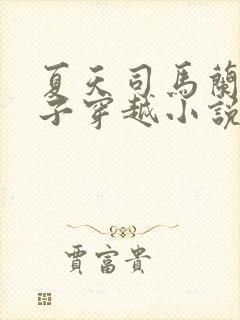 夏天司馬蘭
子穿越小説
賈富貴